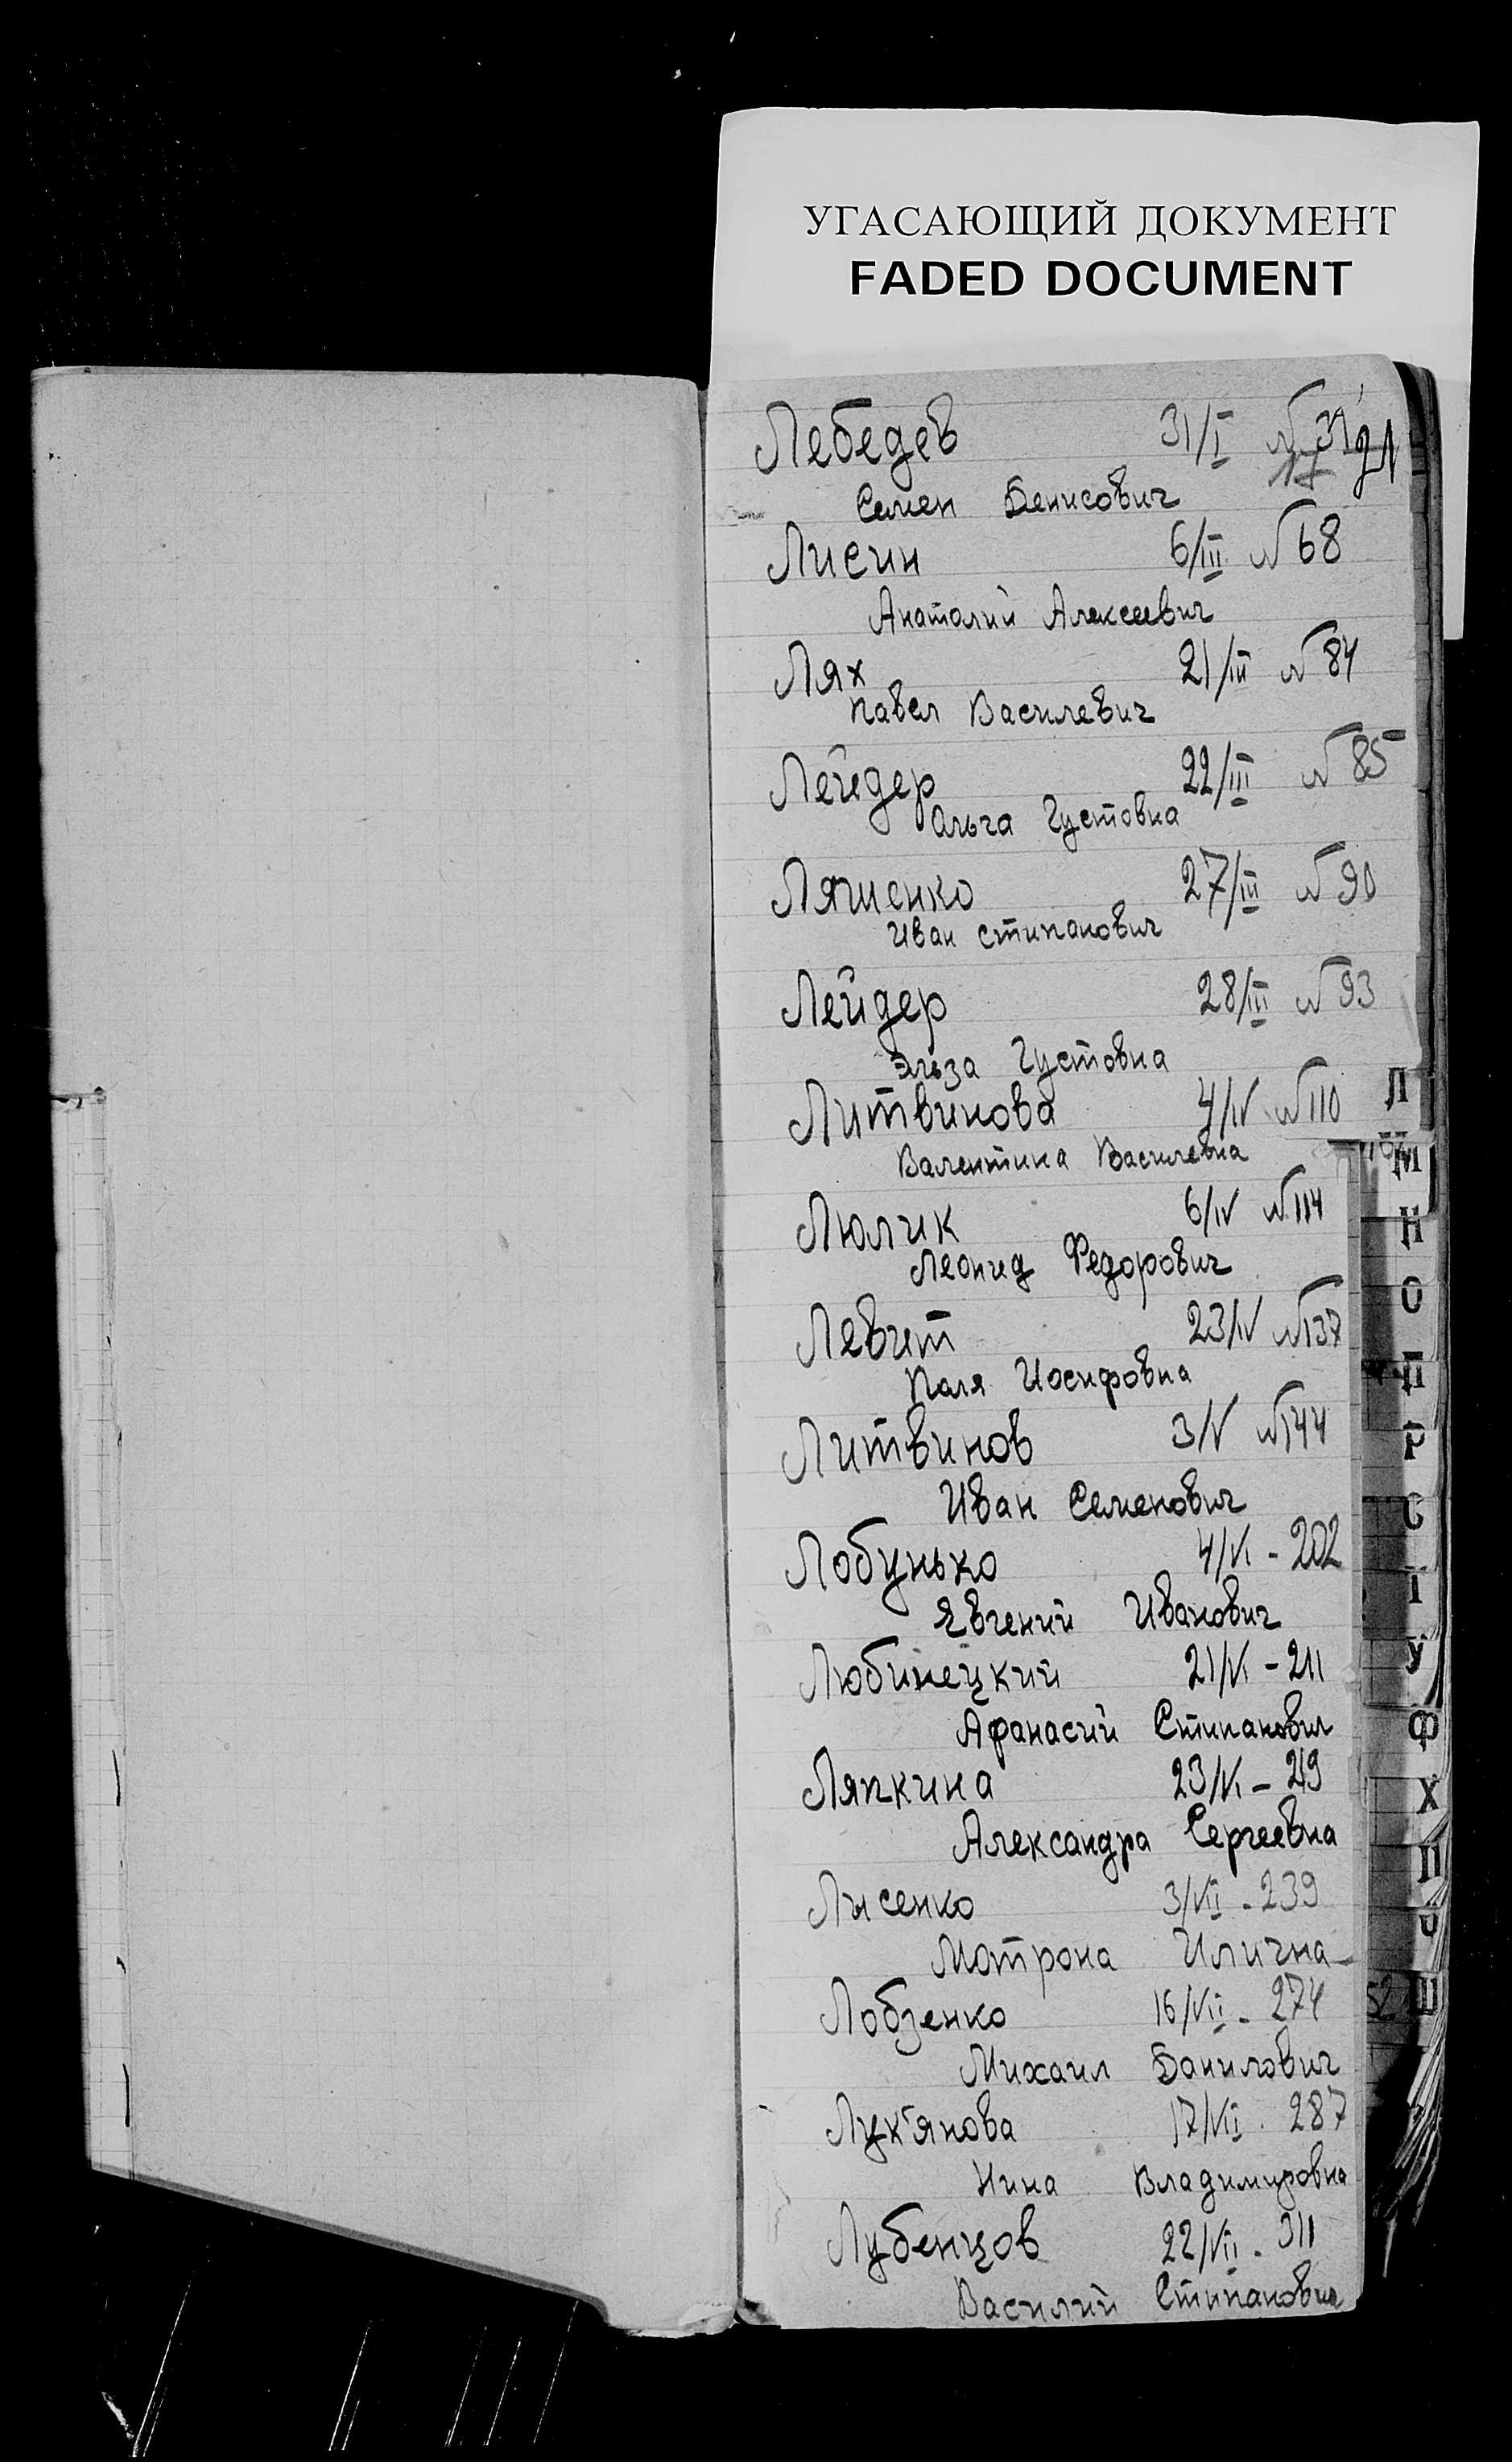 УГАСАЮЩИЙ ДОКУМЕНТ
FADED DOCUMENT
Лебедев 31/I № 31
17 21
Семен Денисович
Лисин 6/III № 68
Анатолий Алексеевич
Лях 21/III № 84
Павел Василевич
Лейдер 22/III № 85
Ольга Густовна
Ляшенко 27/III № 90
Иван Стипанович
Лейдер 28/III № 93
Эльза Густовна
Литвинова 4/IV № 110
Валентина Василевна
Люлик 6/IV № 114
Леонид Федорович
Левит 23/IV № 137
Поля Иосифовна
Литвинов 3/V № 144
Иван Семенович
Лобунько 4/VI - 202
Явгений Иванович
Любинецкий 21/VI - 211
Афанасий Стипанович
Ляпкина 23/VI - 219
Александра Сергеевна
Лысенко 3/VII - 239
Мотрона Илична
Лобзенко 16/VII - 274
Михаил Данилович
Лук'янова 17/VII - 287
Нина Владимировна
Лубенцов 22/VII - 311
Василий Стипанович
Л
М
Н
О
П
Р
С
Т
У
Ф
Х
Ш